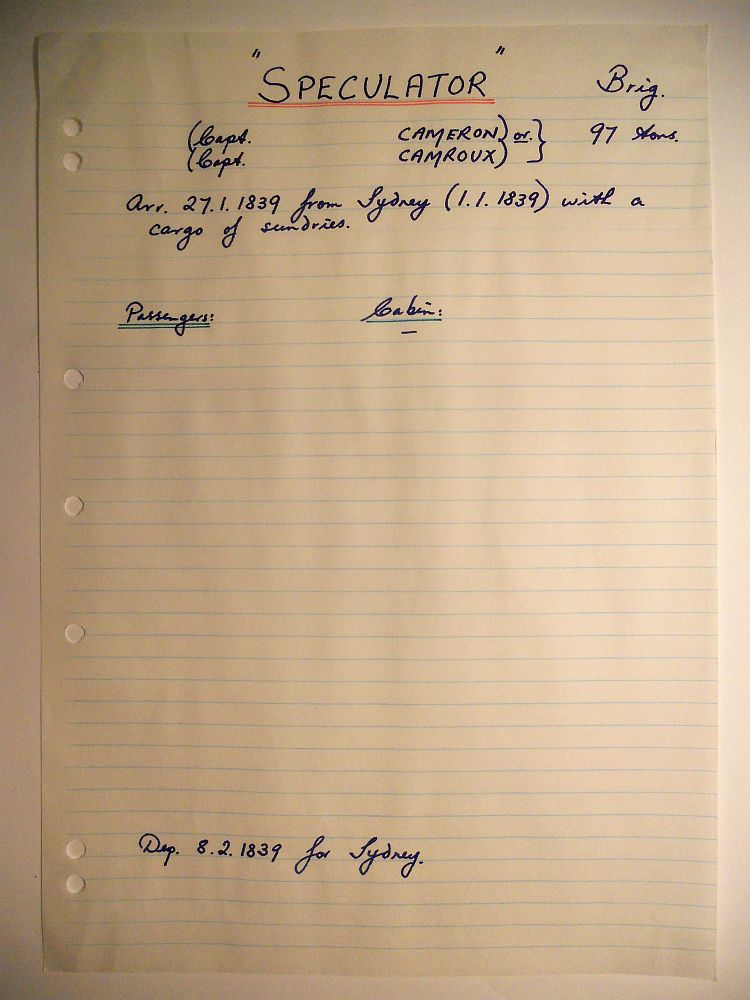 "SPECULATOR" Brig.
(Capt. CAMERON) or. } 97 tons.
(Capt. CAMROUX)
Arr. 27.1.1839 from Sydney (1.1.1839) with a
cargo of sundries.
Passengers: Cabin:
—
Dep. 8.2.1839 for Sydney.